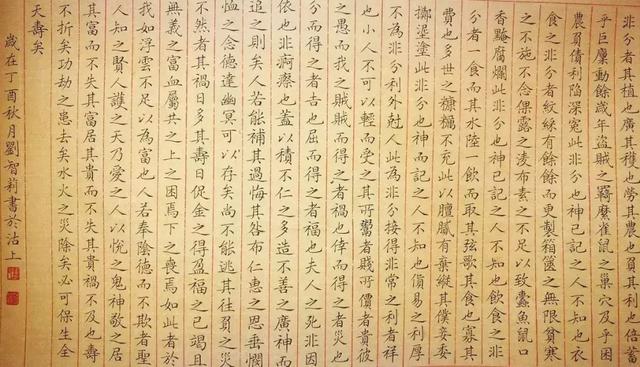 非分者其植也廣其穫也勞其農也負其利也倍蓄
乎巨廩動餘歲年盜賊之羇縻雀鼠之巢穴及乎困
農負債利陷深冤此非分也神已記之人不知也衣
食之非分者紋綵有餘餘而更製箱篋之無限貧寒
之不施不念倮露之凌布素之不足以致蠹魚鼠口
香黦腐爛此非分也神已記之人不知也飲食之非
分者食而其水陸一飲而取其弦歌其食也寡其
費也多世之糠糲不充此以膻膩有棄縱其僕妾委
擲埿塗此非分也神而記之人不知也價易之利厚
不為非分利外尅人此為非分接得非常之利者祥
也小人不可以輕而受之其所鬻者賤所價者貴彼
之愚而我之賊賊而得之者禍也倖而得之者災也
分而得之者吉也屈而得之者福也夫人之死非因
依也非痾瘵也蓋以積不仁之多造不善之廣神而
追之則矣人若能補其過悔其咎布仁惠之恩垂憫
恤之念德達幽冥可以存矣尚不能逃其往負之災
不然者其禍日多其壽日促金之得盈福之已竭且
無義之富血屬共之上之困焉下之喪焉如此者於
我如浮雲不足以為富也人若奉陰德而不欺者聖
人知之賢人護之天乃愛之人以悅之鬼神敬之居
其富而不失其富居其貴而不失其貴禍不及也壽
不折矣功劫之患去矣水火之災除矣必可保生全
天壽矣
歲在丁酉秋月劉智莉書於沽上